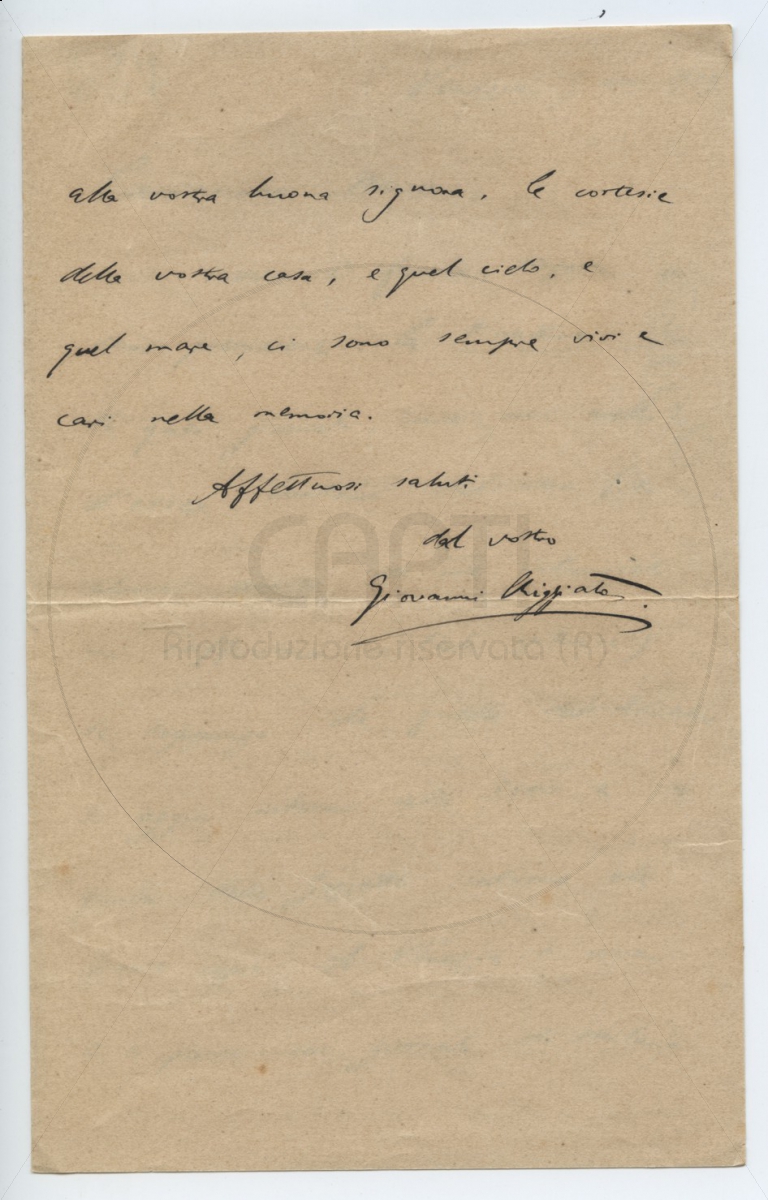 alla vostra buona signora. le cortesie
della vostra casa, e quel cielo, e
quel mare, ci sono sempre vivi e
cari nella memoria.
Affettuosi saluti
dal vostro
Giovanni Chiggiato.
CAPTI
Riproduzione riservata (R)